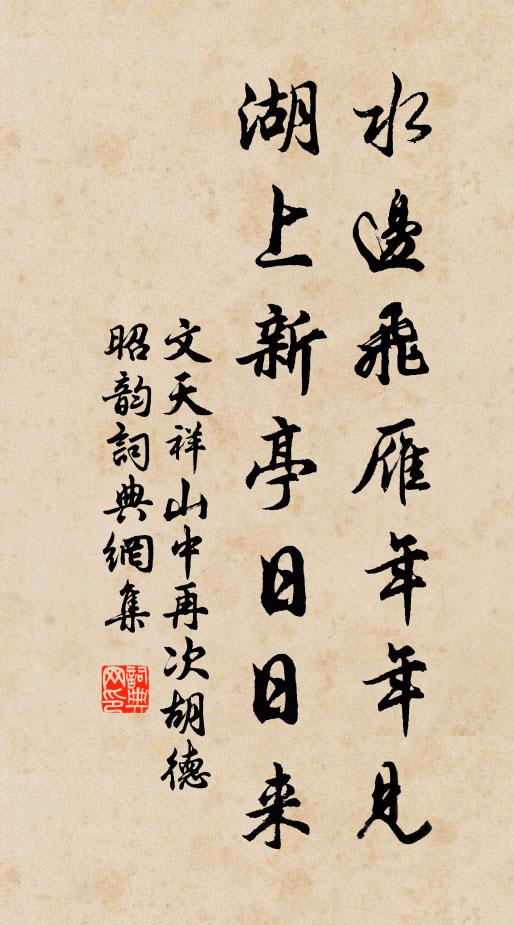 水邊飛雁年年見
湖上新亭日日来
文天祥山中再次胡德
昭韵詞典網集
詞典网印